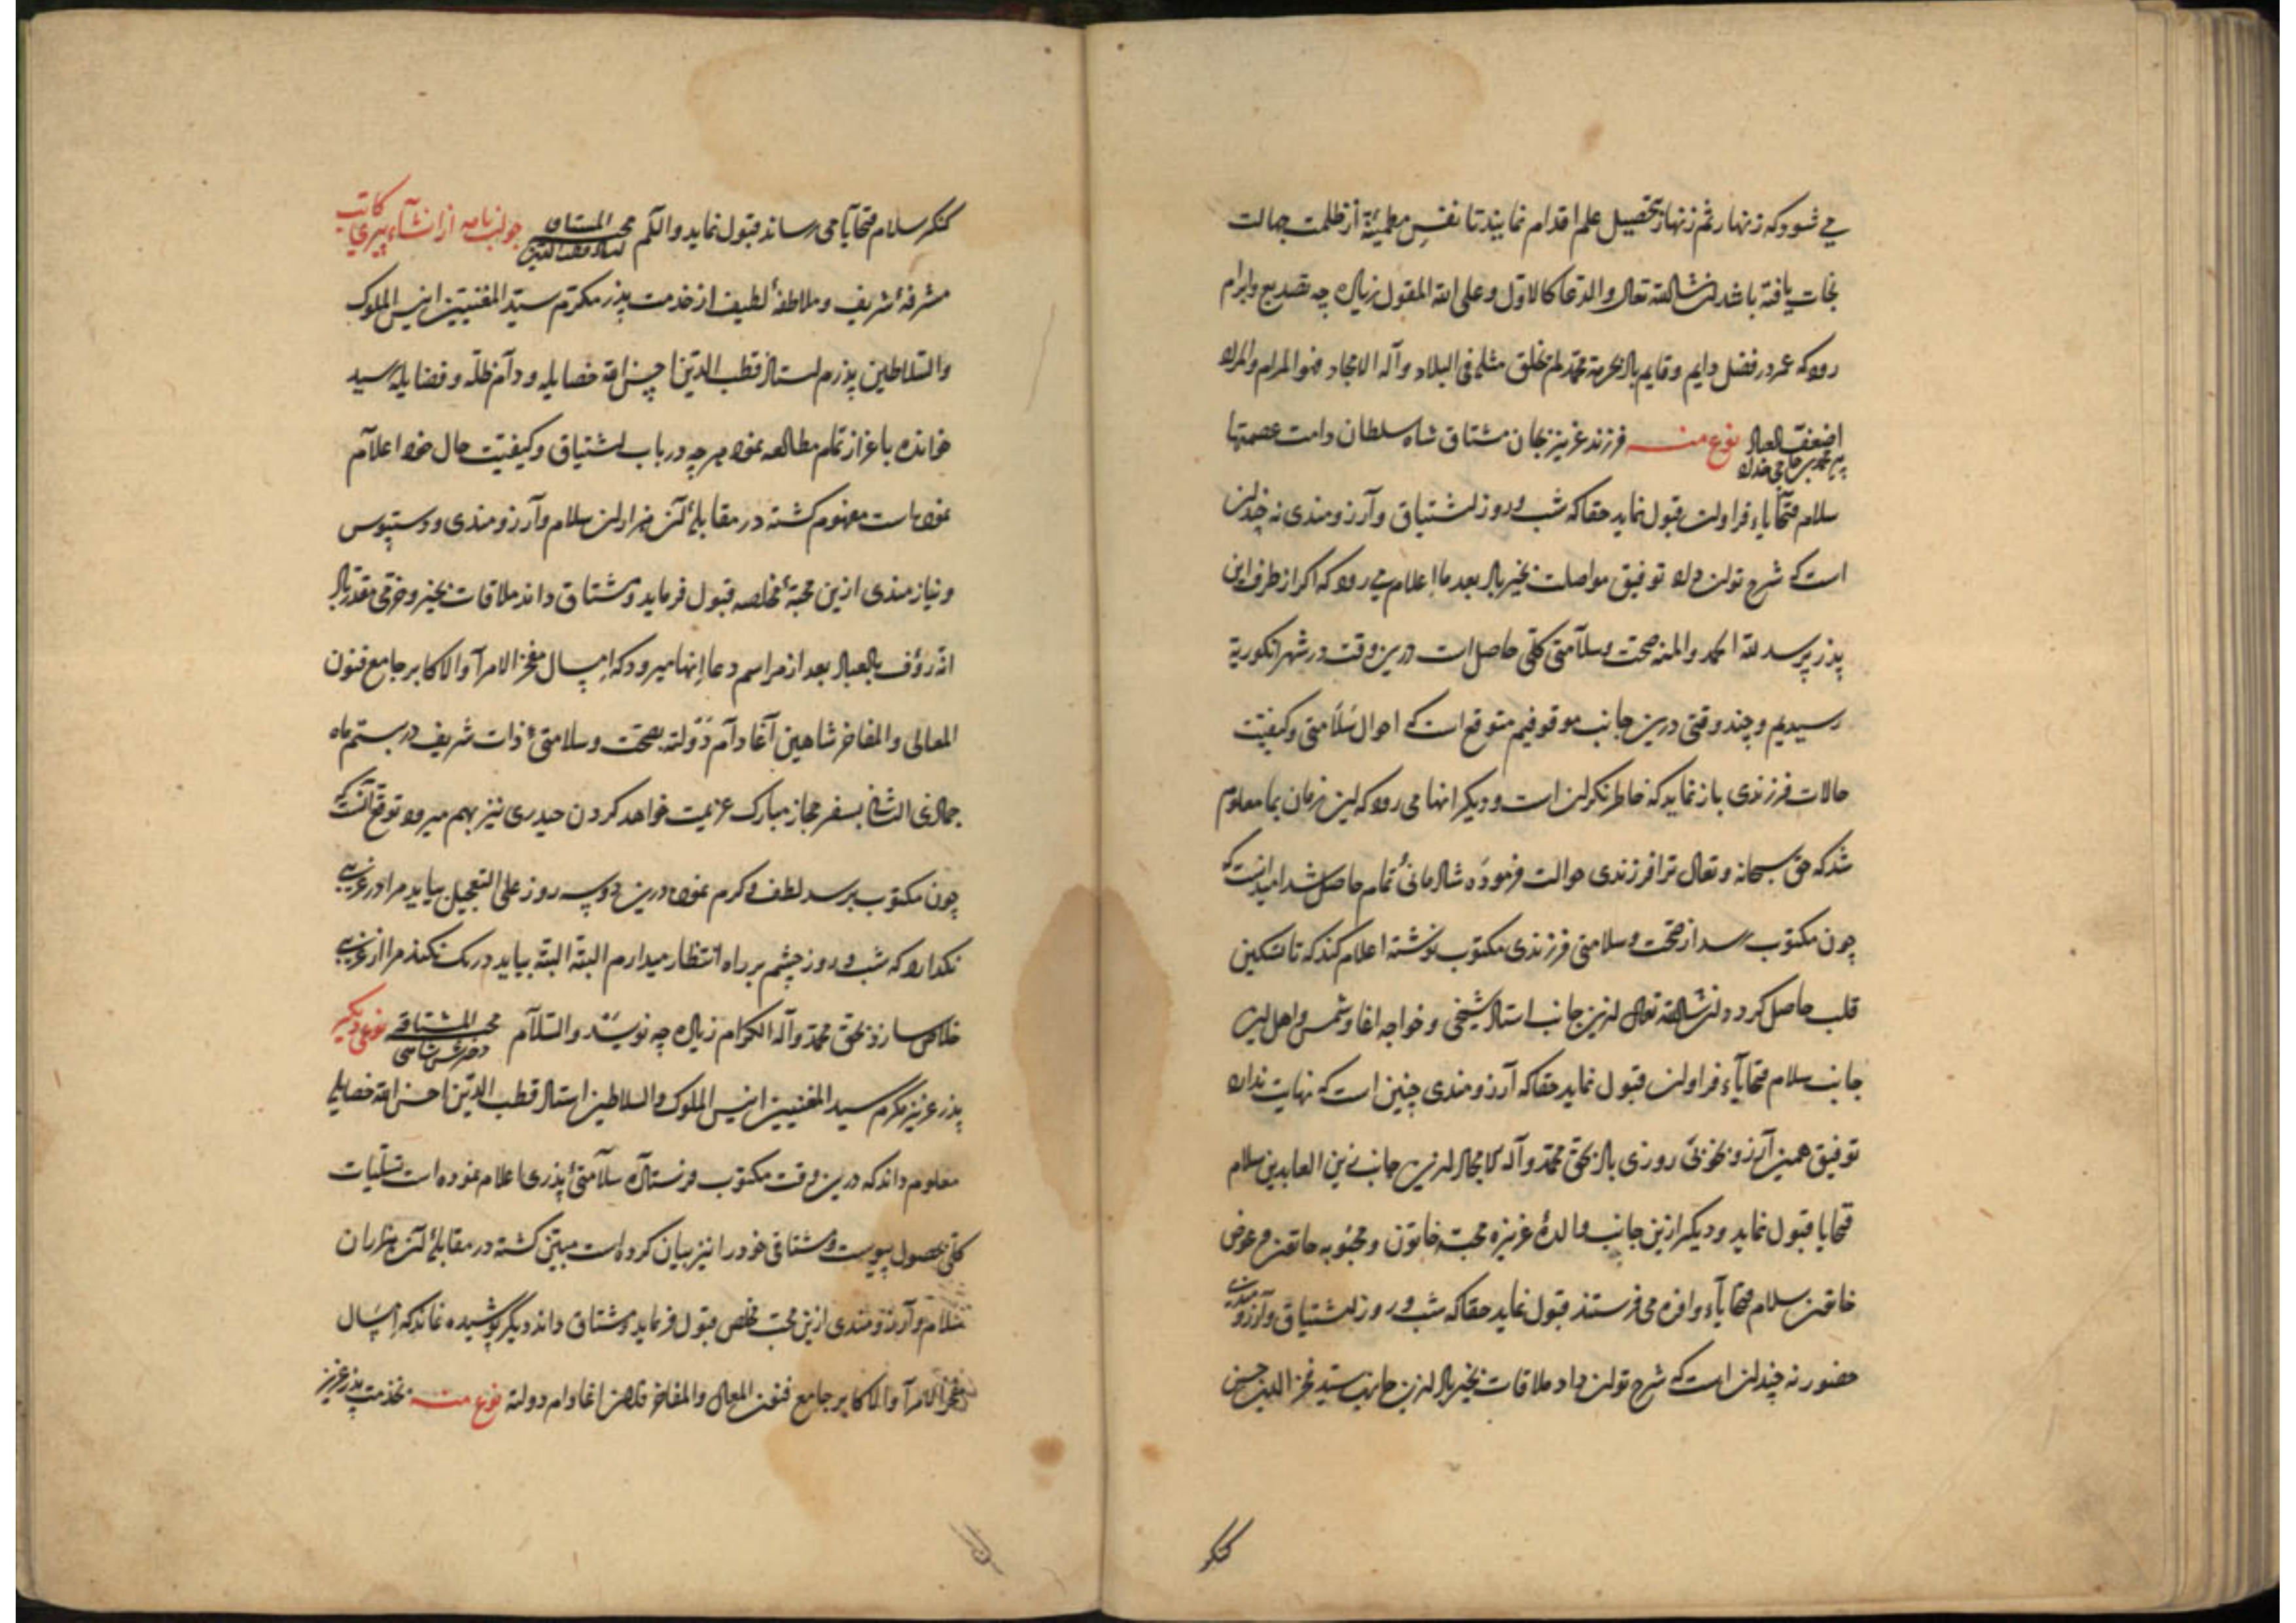 می شود که زنهار ثم زنهار بتحصیل علم اقدام نمایند تا نفس مطمئنه از ظلمت جهالت
نجات یافته باشد ان شاالله تعالی والدعا کالاول و علی الله المقبول زیاده چه تصدیع و ابرام
رود که عمر در فضل دایم و قایم باد بحرمة محمد لم یخلق مثله فی البلاد و آله الامجاد
اضعف العباد نوع منه فرزند عزیز بجان مشتاق شاه سلطان دامت عصمتها
سلام و تحایاء فراوان قبول نماید حقا که شب و روز اشتیاق و آرزومندی نه چندان
است که شرح توان داد توفیق مواصلت بخیر باد بعد ما اعلام می رود که اگر از طرف این
پذر پرسد لله الحمد والمنه صحت و سلامتی کلی حاصل است درین وقت در شهر انکوریة
رسیدیم و چند وقتی درین جانب موقوفیم متوقع است که احوال سلامتی و کیفیت
حالات فرزندی باز نماید که خاطر نکران است و دیکر انها می رود که این زمان بما معلوم
شد که حق سبحانه و تعالی ترا فرزندی حوالت فرموده شادمانئ تمام حاصل شد امید آنست که
چون مکتوب رسد از صحت و سلامتی فرزندی مکتوب نوشته اعلام کند که تا تسکین
قلب حاصل کردد ان شاالله تعالی ازین جانب استاد شیخی و خواجه اغا و شمس و اهل این
جانب سلام و تحایاء فراوان قبول نماید حقا که آرزومندی چنین است که نهایت ندارد
توفیق همین آرزو بخوبی روزی باد بحق محمد و آله الامجاد ازین جانب زین العابدین سلام
و تحایا قبول نماید و دیکر ازین جانب والدۀ عزیزه محبة خاتون و محبوبه خاتون و عوض
خاتون سلام و تحایاء وافره می فرستند قبول نماید حقا که شب و روز اشتیاق و آرزومندی
حضور نه چندان است که شرح توان داد ملاقات بخیر باد ازین جانب سید فخر الدین حسن
کنکر
کنکر سلام و تحایا می رساند قبول نماید والکم محبه المشتاق جواب نامه از انشاء پیری کاتب
مشرفۀ شریف و ملاطفۀ لطیف از خدمت پذر مکرم سید المغنیین انیس الملوک
والسلاطین پذرم استاد قطب الدین احسن الله خصایله و دام ظله و فضایله رسید
خوانده باعزاز تمام مطالعه نموده هرچه در باب اشتیاق و کیفیت حال خود اعلام
نموده است مفهوم کشته در مقابلۀ آن هزاران سلام و آرزومندی و دستبوس
و نیازمندی ازین محبۀ مخلصه قبول فرماید و مشتاق داند ملاقات بخیر و خرمی مقدر باد
انه رؤف بالعباد بعد از مراسم دعا انها میرود که امسال مفخر الامرا والاکابر جامع فنون
المعالی والمفاخر شاهین آغا دام دولته بصحت و سلامتئ ذات شریف در بیستم ماه
جمادی الثانی بسفر حجاز مبارک عزیمت خواهد کردن حیدری نیز بهم میرود توقع آنست که
چون مکتوب برسد لطف و کرم نموده درین دو سه روز علی التعجیل بیاید مرا در غریبی
نکدارد که شب و روز چشم بر راه انتظار میدارم البته البته بیاید درنک نکند مرا از غریبی
خلاص سازد بحق محمد و آله الکرام زیاده چه نویسد والسلام محبه المشتاقه نوعی دیگر
پذر عزیز مکرم سید المغنیین انیس الملوک والسلاطین استاد قطب الدین احسن الله خصایله
معلوم داند که درین وقت مکتوب فرستاده سلامتئ پذری اعلام نموده است تسلیات
کلی بحصول پیوست و مشتاقی خود را نیز بیان کرده است مبین کشته در مقابلۀ آن هزاران
سلام و آرزومندی ازین محب مخلص قبول فرماید و مشتاق داند دیگر پوشیده نماند که امسال
مفخر الامرا والاکابر جامع فنون المعالی والمفاخر اغا دام دولته نوع منه بخذمت پذر عزیز